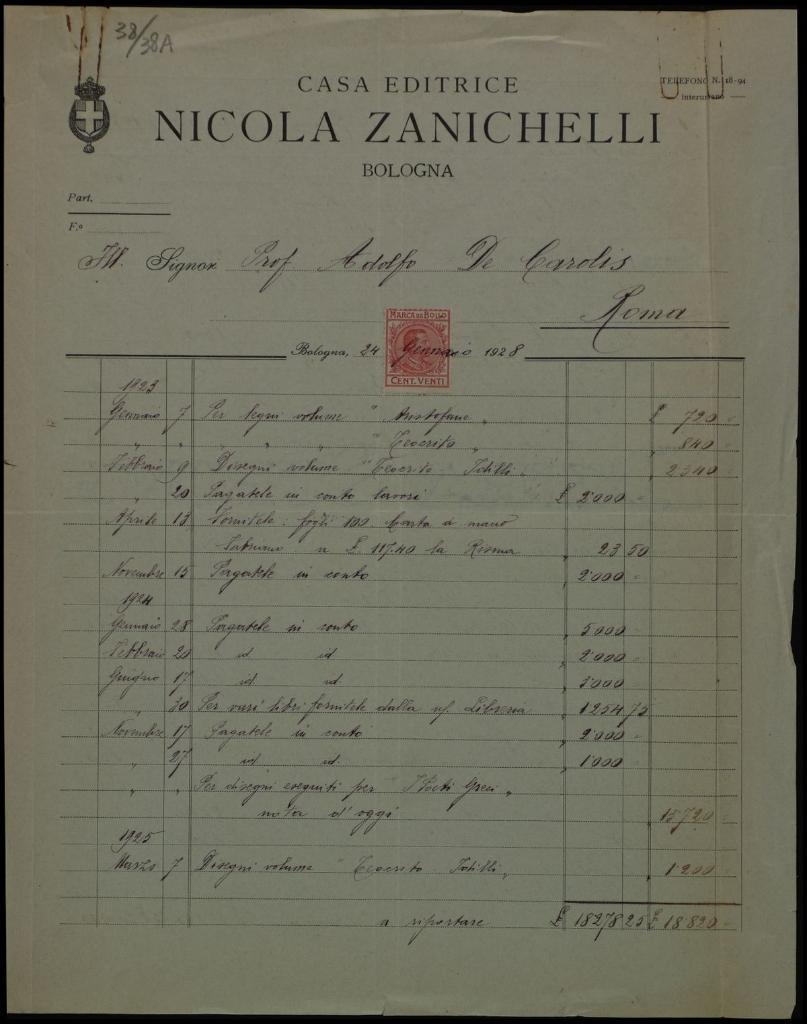 38/38A
TELEFONO N. 18-94
interurbano
CASA EDITRICE
NICOLA ZANICHELLI
BOLOGNA
Part.
F.º
Ill. Signor Prof Adolfo De Carolis
Roma
MARCA DA BOLLO
CENT. VENTI
Bologna, 24 Gennaio 1928
1923
Gennaio 7 Per legni volume " Aristofane " £ 720 -
" " " " " Teocrito " " 840 -
Febbraio 9 Disegni volume " Teocrito Idilli " " 2340 -
" 20 Pagatele in conto lavori £ 2000 -
Aprile 13 Fornitele: fogli 100 Carta a mano
Fabriano a £ 117.40 la Risma " 23 50
Novembre 15 Pagatele in conto " 2000 -
1924
Gennaio 28 Pagatele in conto " 5000 -
Febbraio 20 id id " 2000 -
Giugno 17 id id " 3000 -
" 30 Per vari libri fornitele dalla ns/ Libreria " 1254 75
Novembre 17 Pagatele in conto " 2000 -
" 27 id id " 1000 -
" " Per disegni eseguiti per " I Poeti Greci "
nota d'oggi " 15720 -
1925
Marzo 7 Disegni volume " Teocrito Idilli " " 1200 -
a riportare £ 18278 25 £ 18820 -